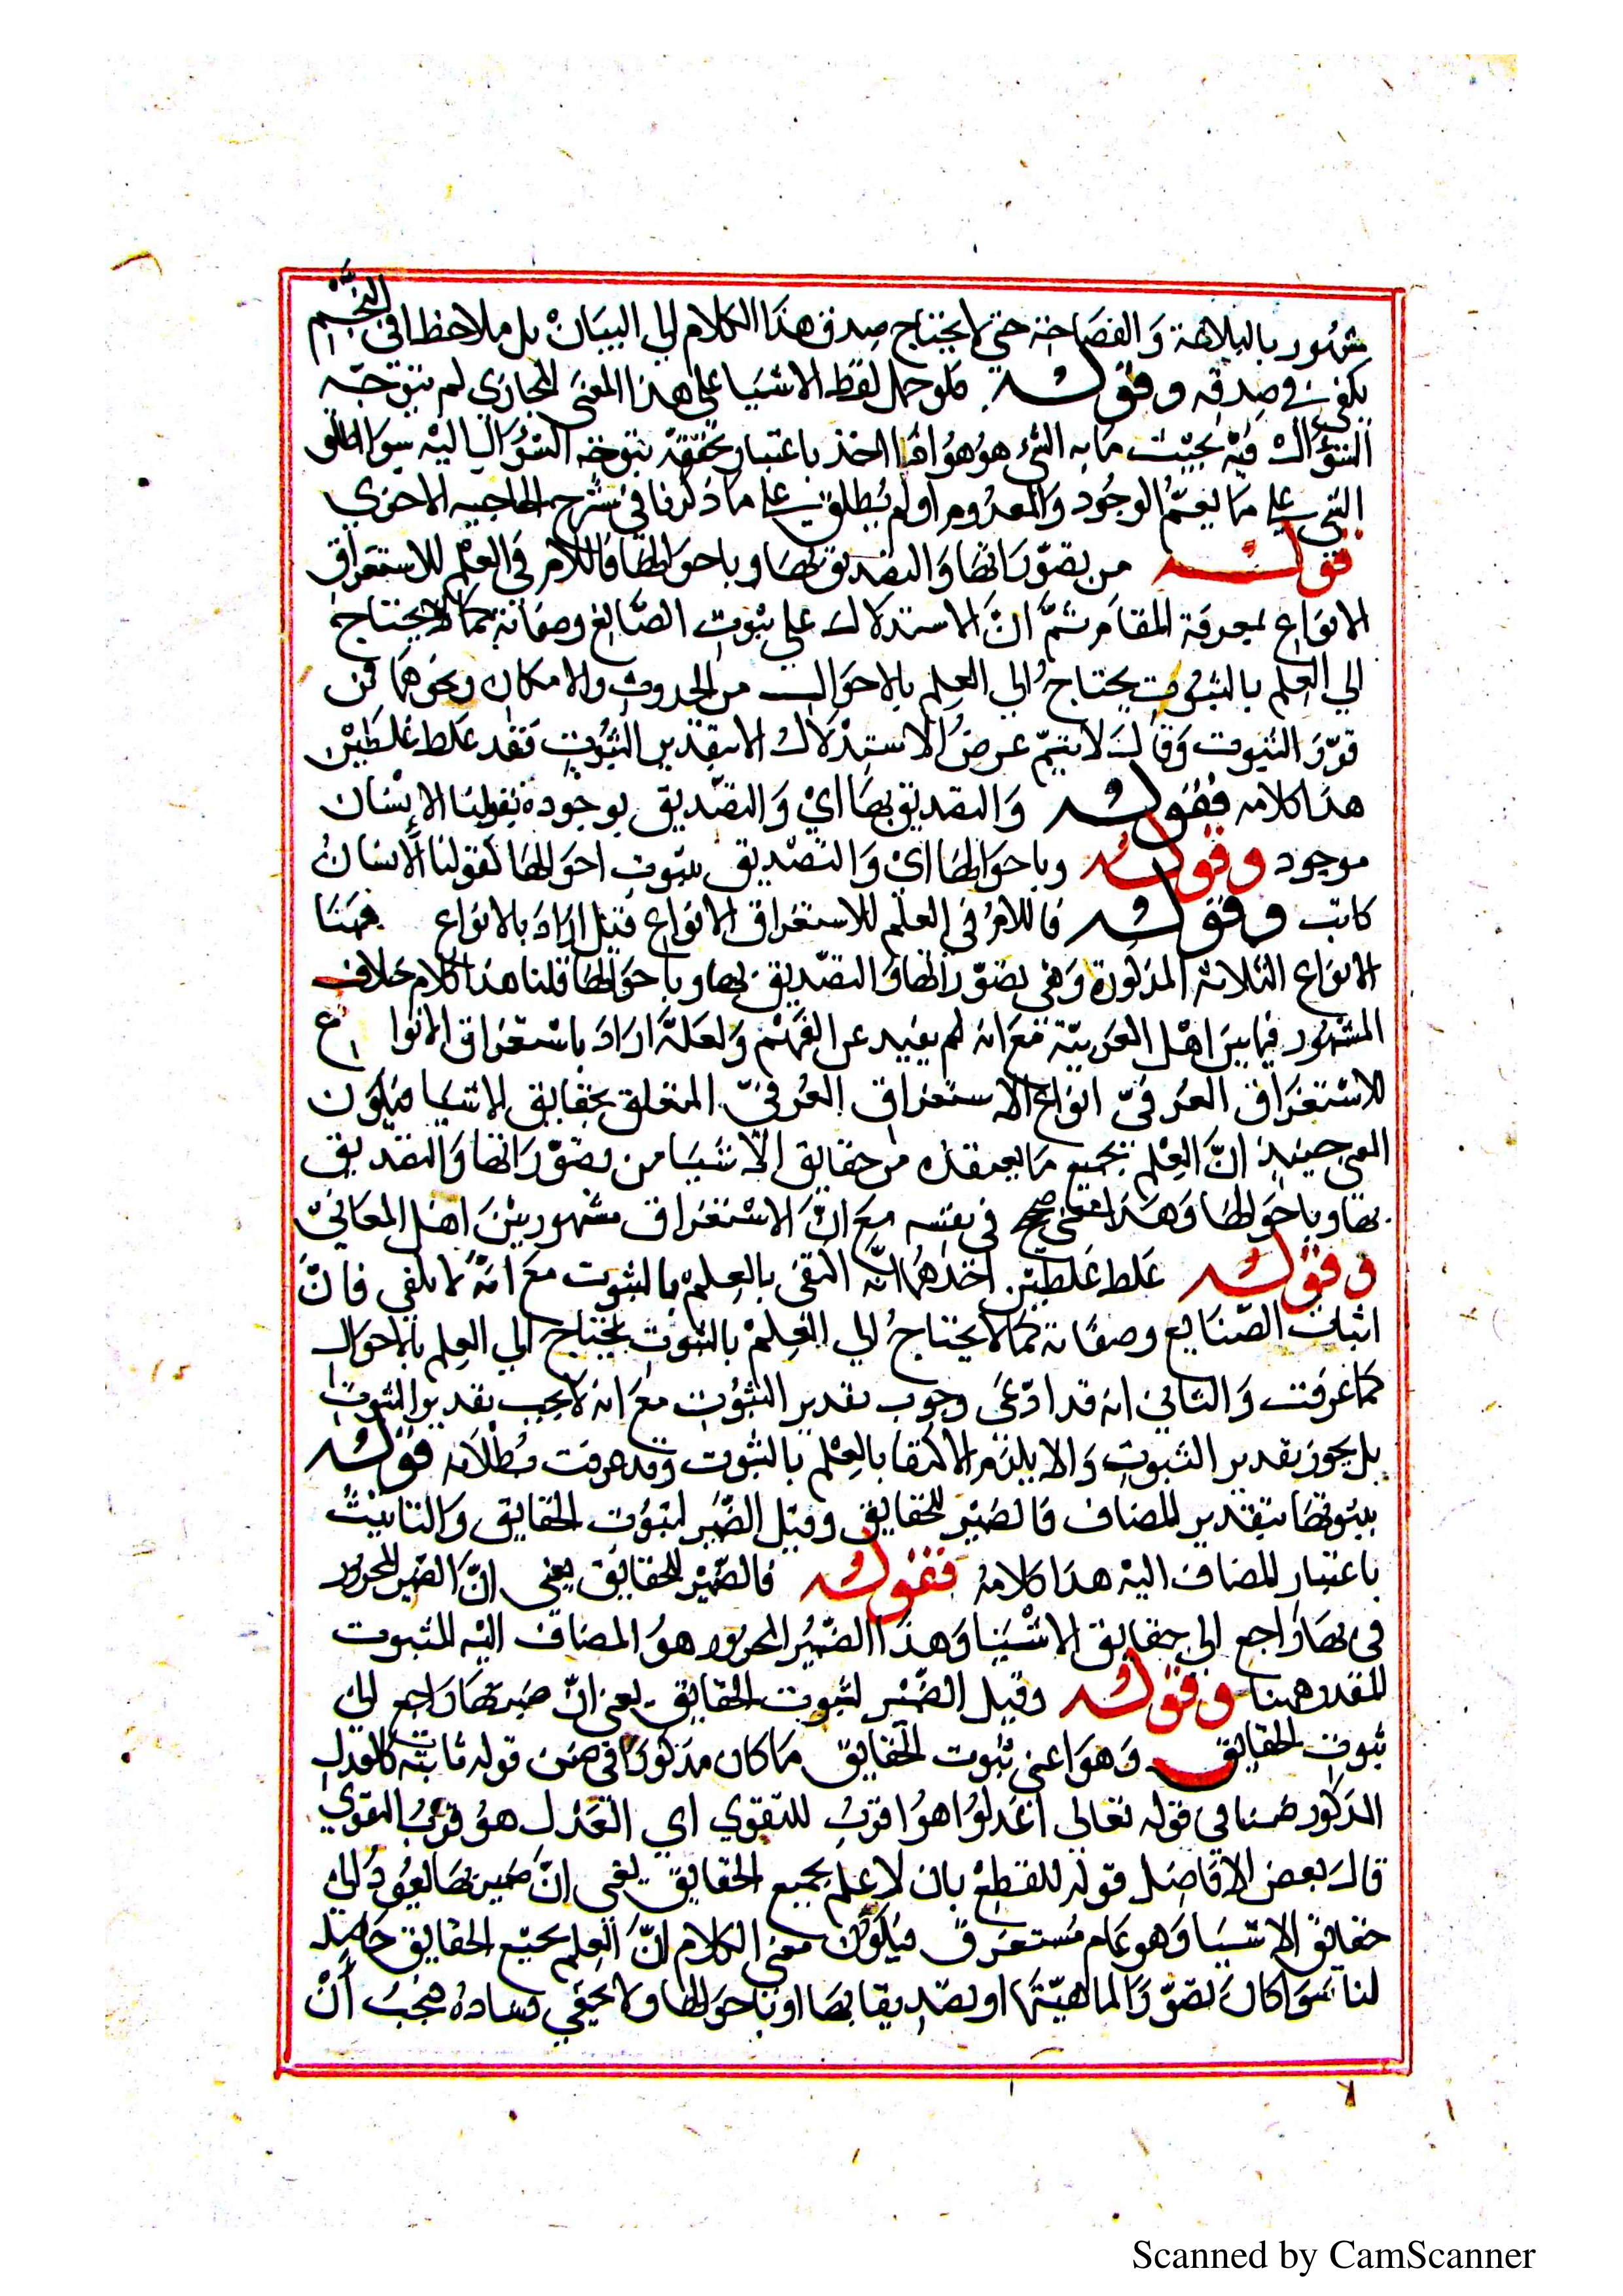 شهور بالبلاهة والفصاحة حتي لا يحتاج صدق هذا الكلام الي البيان بل ملاحظة ابي النجم
يكفي في صدقه وقوله فلو حمل لفظ الاشيا علي هذا المعني المجازي لم يتوجّه
السؤال فيه بحيث ما به الشي هو هو اما اخذ باعتبار تحققه يتوجه السؤال اليه سوا اطلق
الشي علي ما يعمّ الوجود والمعدوم او لم يطلق علي ما ذكرنا في شرح الحاجيه الاخري
قوله من تصوّراتها والتصديق بها وباحوالها فاللام في العلم للاستغراق
الانواع بمعرفة المقام ثمّ انّ الاستدلال علي ثبوت الصانع وصفاته كما لا يحتاج
الي العلم بالثبوت يحتاج الي العلم بالاحوال من الحدوث والامكان ونحوهما فمن
قدّر الثبوت وقال لا يتمّ غرض الاستدلال الا بتقدير الثبوت فقد غلط غلطين
هذا كلامه فقوله والتصديق بها اي والتصديق بوجوده كقولنا الانسان
موجود وقوله وباحوالها اي والتصديق بثبوت احوالها كقولنا الانسان
كاتب وقوله فاللام في العلم للاستغراق الانواع قيل اراد بالانواع ههنا
الانواع الثلاثه المذكورة وهي تصوّراتها والتصديق بها وباحوالها قلنا هذا كلام خلاف
المشهور فيما بين اهل العربيّة مع انه لم يفيد عن الفهم ولعلّه اراد باستغراق الانوا ع
للاستغراق العرفيّ انواع الاستغراق العرفيّ المتعلق بحقايق الاشيا فيكون
المعني حينيذ انّ العلم بجميع ما يعتقده من حقايق الاشيا من تصوّراتها والتصديق
بها وباحوالها وهذا معني صحيح في نفسه مع انّ الاستغراق مشهور بين اهل المعانيّ
وقوله غلط غلطين احدهما انّه اكتفي بالعلم بالثبوت مع انّه لا يكفي فانّ
اثبات الصّنايع وصفاته كما لا يحتاج الي العلم بالثبوت يحتاج الي العلم بالاحوال
كما عرفت والثاني انه قد ادّعي وجوب تقدير الثبوت مع انه لا يجب تقدير الثبوت
بل يجوز تقدير الثبوت والا يلزم الاكتفا بالعلم بالثبوت وقد عرفت بطلانه قوله
بثبوتها بتقدير المضاف فالضمير للحقايق وقيل الضمير لثبوت الحقايق والتانيث
باعتبار المضاف اليه هذا كلامه فقوله فالضمير للحقايق يعني انّ الضمير المجرور
في بها راجع الي حقايق الاشيا وهذا الضمير المجرور هو المضاف اليه للثبوت
المقدر ههنا وقوله وقيل الضمير لثبوت الحقايق يعني انّ ضمير بها راجع الي
ثبوت الحقايق وهو اعني ثبوت الحقايق ما كان مذكورا في ضمن قوله ثابتة كالعدل
المذكور ضمنا في قوله تعالي اعدلوا هو اقرب للتقوي اي العدل هو قرب التقوي
قال بعض الافاضل قوله للقطع بان لا علم بجميع الحقايق يعني انّ ضمير بها يعود الي
حقايق الاشيا وهو عام مستغرق فيكون معني الكلام انّ العلم بجميع الحقايق حاصل
لنا سوا كان تصوّرا لماهيّتها او تصديقا بها او باحوالها ولا يخفي فساده فيجب أنْ
Scanned by CamScanner